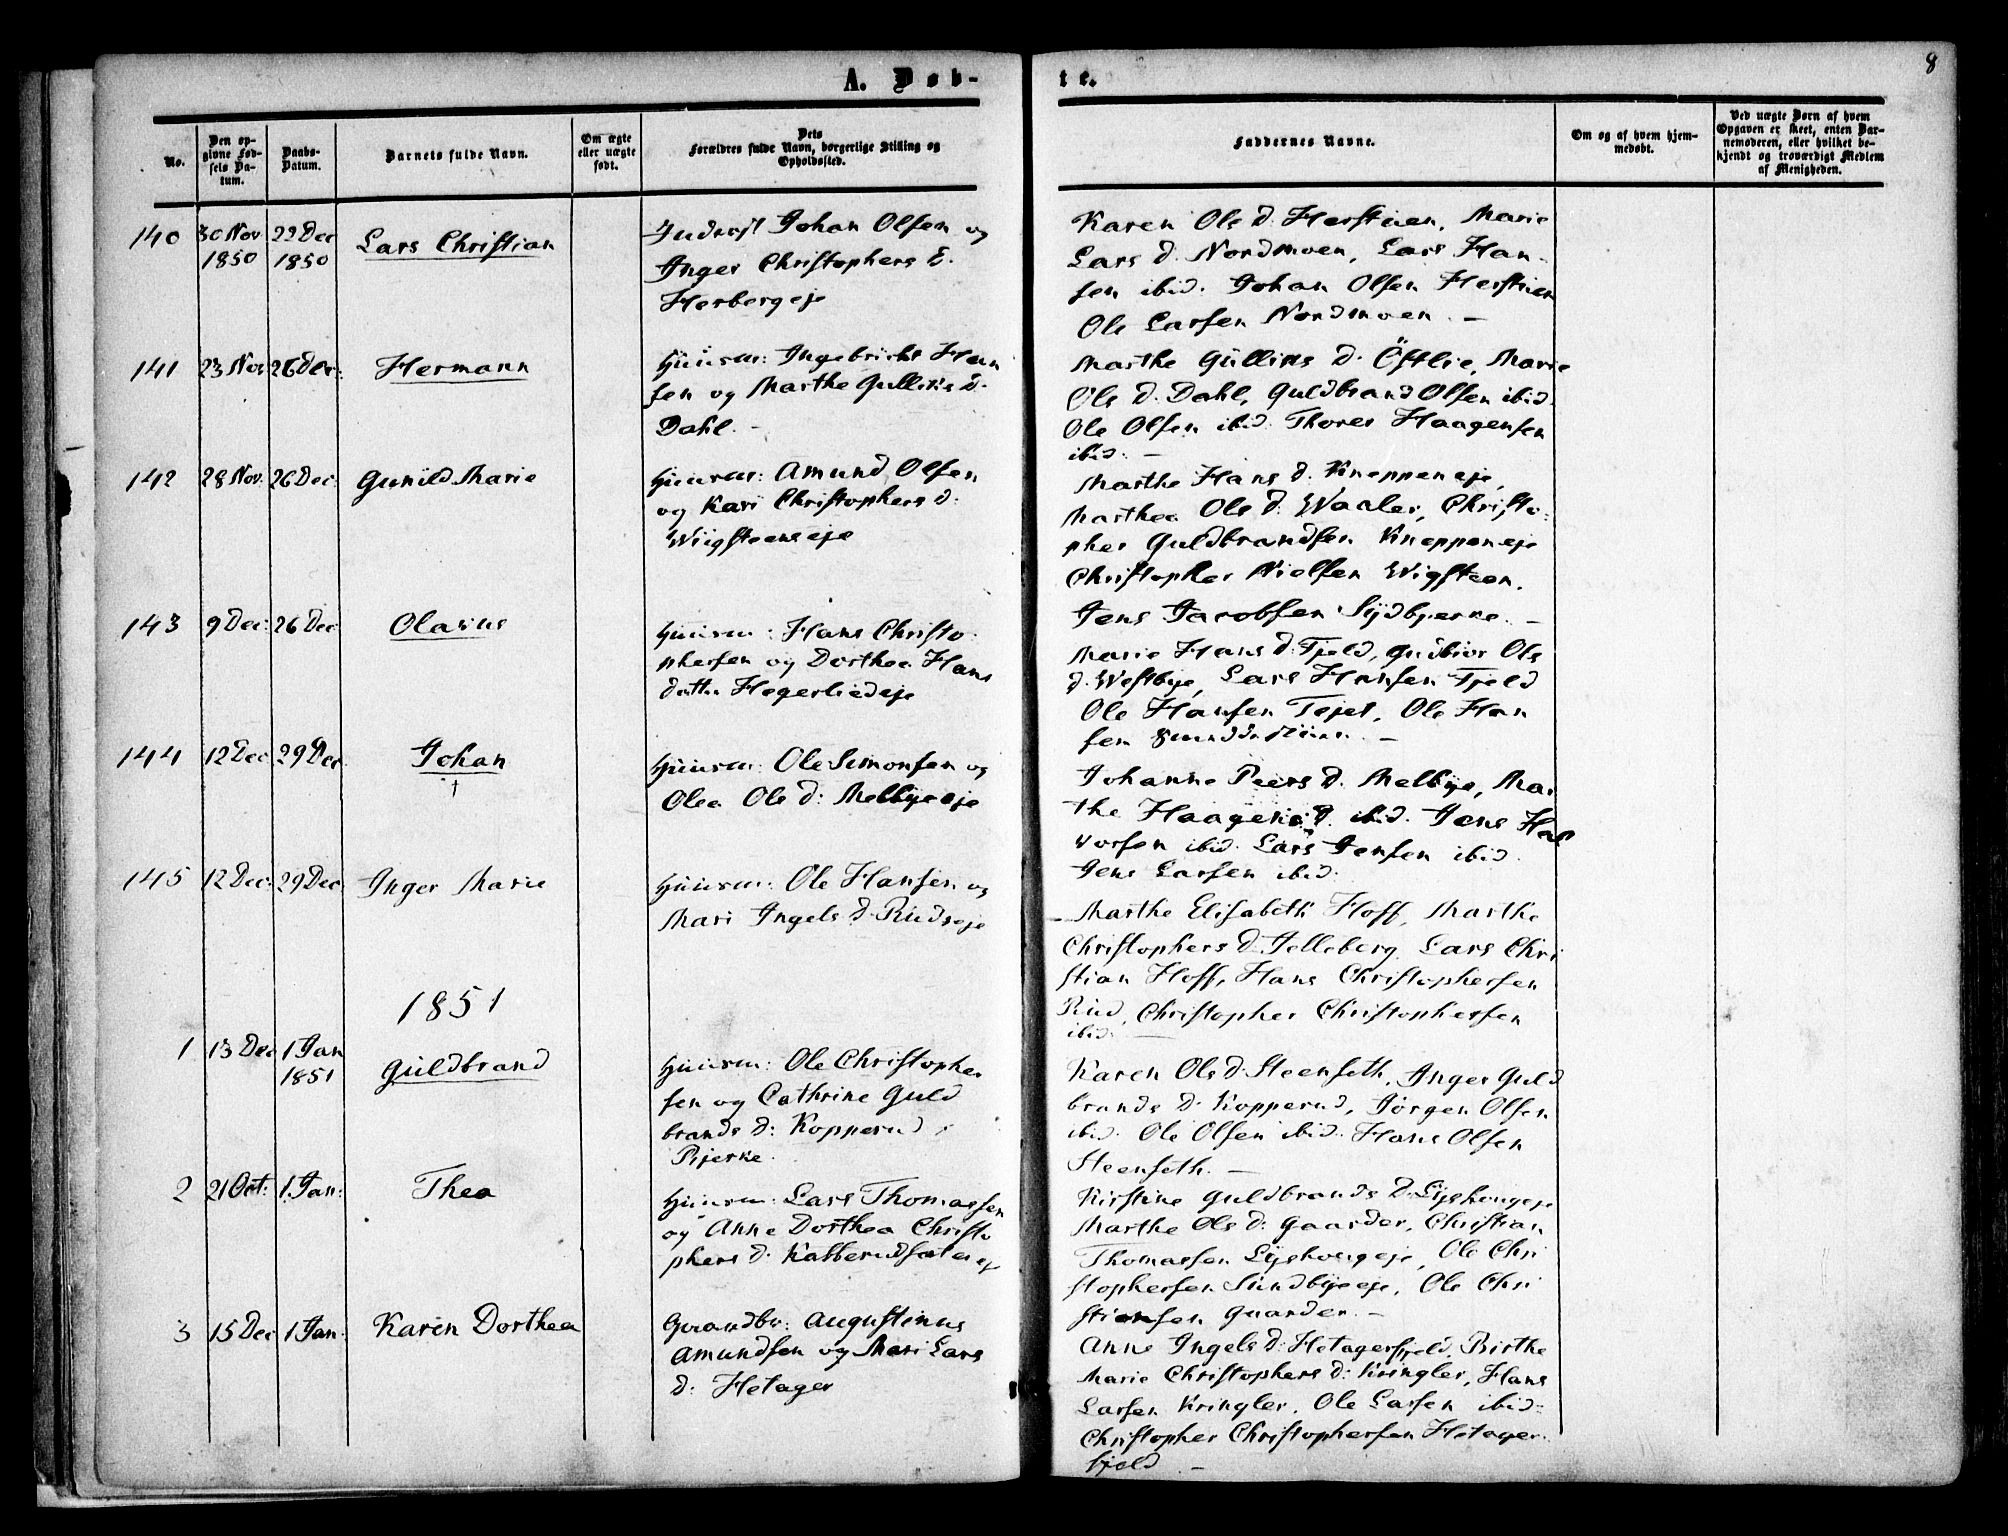 8
A. Døb-
te.
No.
Den opgivne Fødsels Datum.
Daabs-Datum.
Barnets fulde Navn.
Om ægte eller uægte født.
Dets Forældres fulde Navn, borgerlige Stilling og Opholdssted.
Faddernes Navne.
Om og af hvem hjemmedøbt.
Ved uægte Børn af hvem Opgaven er skeet, enten Barnemoderen, eller hvilket bekjendt og troværdigt Medlem af Menigheden.
140 30 Nov 1850 22 Dec 1850 Lars Christian
Inderst Johan Olsen og
Inger Christophers D.
Herbergeje
Karen Ols d. Herstuen, Marie
Lars d. Nordmoen, Lars Han-
sen ibid. Johan Olsen Herstuen
Ole Larsen Nordmoen. –
141 23 Nov 26 Dec: Hermann
Huusm: Ingebricht Han
sen og Marthe Gulliks d.
Dahl. –
Marthe Gulliks d. Östlie, Marie
Ols d. Dahl, Guldbrand Olsen ibid.
Ole Olsen ibid. Thorer Haagensen
ibid. –
142 28 Nov. 26 Dec. Gunild Marie
Huusm: Amund Olsen
og Kari Christophers d.
Wiigsteenseje
Marthe Hans d. Kneppeneje,
Marthea Ols d. Waaler, Christo-
pher Guldbrandsen Kneppeneje
Christopher Nielsen Wigsteen.
Jens Jacobsen Sydbjerke. –
143 9 Dec: 26 Dec Olavus
Huusm: Hans Christo-
phersen og Dorthea Hans
datter Hegerliedeje
Marie Hans d. Fjeld, Gudbior Ols
d. Westbye, Lars Hansen Fjeld
Ole Hansen Tejet, Ole Han
sen
144 12 Dec 29 Dec. Johan
†
Huusm: Ole Simonsen og
Olea Ols d: Melbyeeje
Johanne Peers d. Melbye, Mar
the Haagens d. ibid. Jens Hal
vorsen ibid. Lars Jensen ibid.
Jens Larsen ibid.
145 12 Dec: 29 Dec. Inger Marie
Huusm: Ole Hansen og
Mari Ingels d. Rudseje
Marthe Elisabeth Hoff, Marthe
Christophers d. Jelleberg, Lars Chri
stian Hoff, Hans Christophersen
Rud, Christopher Christophersen
ibid. –
1851
1 13 Dec 1 Jan 1851 Guldbrand
Huusm: Ole Christopher
sen og Cathrine Guld
brands d: Kopperud
Bjerke.
Karen Ols d. Steenseth, Inger Guld
brands d. Kopperud, Jørgen Olsen
ibid. Ole Olsen ibid. Hans Olsen
Steenseth. –
2 21 Oct: 1. Jan: Thea
Huusm: Lars Thomassen
og Anne Dorthea Christo
phers d. Kabberudsætereje
Kirstine Guldbrands d. Lyshougeje
Marthe Ols d: Gaarder, Christian
Thomassen Lyshougeje, Ole Chri
stophersen Sundbyeeje, Ole Chri
stiansen Gaarder. –
3 15 Dec 1 Jan. Karen Dorthea
Gaardbr: Augustinus
Amundsen og Mari Lars
d: Hetager
Anne Ingels d: Hetagerfjeld, Birthe
Marie Christophers d: Kringler, Hans
Larsen Kringler, Ole Larsen ibid.
Christopher Christophersen Hetager
fjeld –